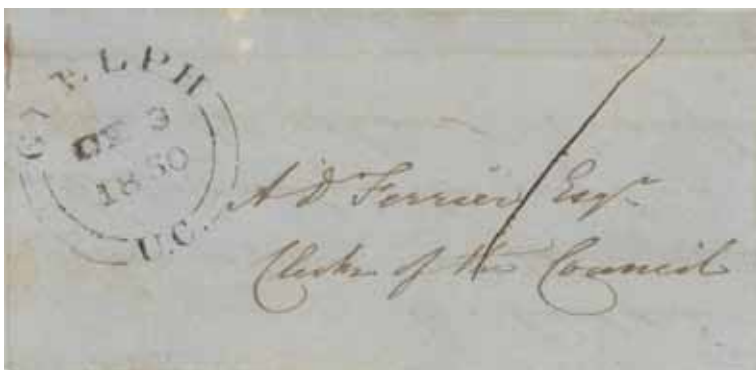 GUELPH
DE 3
1850
U.C.
A D Ferrier Esqr
Clerk of the Council